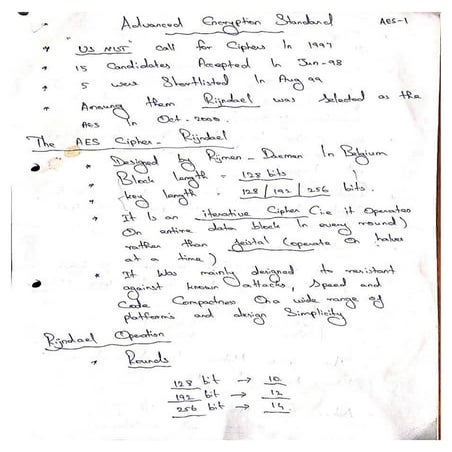 Advanced Encryption Standard AES-1
* "US NIST" Call for Ciphers In 1997
* 15 Candidates Accepted In Jun-98
* 5 were Shortlisted In Aug 99
* Among them Rijndael was Selected as the
AES In Oct-2000.
The AES Cipher - Rijndael
* Designed by Rijmen - Daeman In Belgium
* Block length = 128 bits
* Key length = 128/192/256 bits.
* It Is an iterative Cipher (i.e it Operates
On entire data block In every round)
rather than feistal (operate On halves
at a time)
* It Was mainly designed to resistant
against known attacks, Speed and
Code Compactness On a wide range of
platforms and design Simplicity
Rijndael Operation
* Rounds
128 bit → 10
192 bit → 12
256 bit → 14.